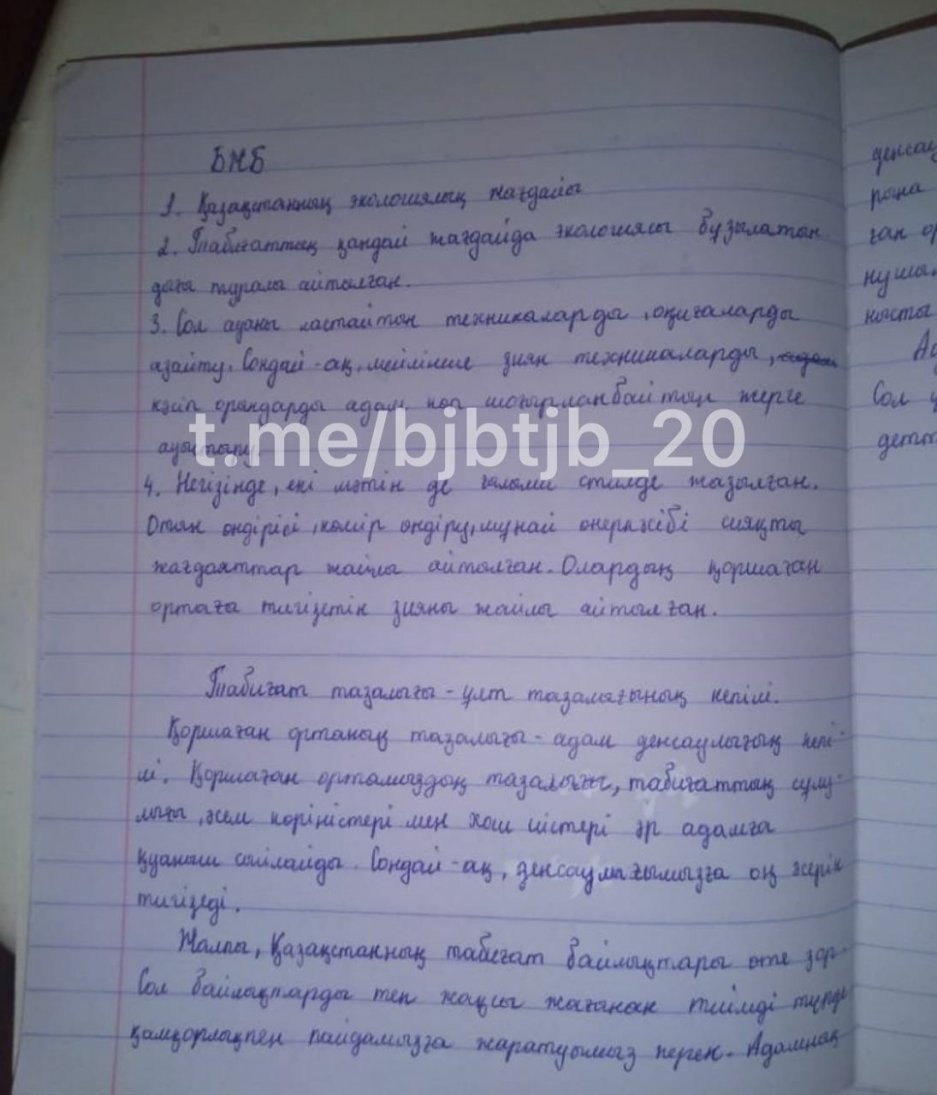 БЖБ
1. Қазақстанның экологиялық жағдайы
2. Табиғаттың қандай жағдайда экологиясы бұзылатын
дағы туралы айтылған.
3. Сол ауаны ластайтын техникаларды, оқиғаларды
азайту. Сондай-ақ, мейлінше зиян техникаларды,
кәсіп орындарды адам көп шоғырланбайтын жерге
ауыстыру.
t.me/bjbtjb_20
4. Негізінде, екі мәтін де ғылыми стилде жазылған.
Отын өндірісі, көмір өндіру, мұнай өнеркәсібі сияқты
жағдаяттар жайлы айтылған. Олардың қоршаған
ортаға тигізетін зияны жайлы айтылған.
Табиғат тазалығы - ұлт тазалығының кепілі.
Қоршаған ортаның тазалығы - адам денсаулығың кепі-
лі. Қоршаған ортамыздың тазалығы, табиғаттың сұлу-
лығы, әсем көріністері мен хош иістері әр адамға
қуаныш сыйлайды. Сондай-ақ, денсаулығымызға оң әсерін
тигізеді.
Жалпы, Қазақстанның табиғат байлықтары өте зор.
Сол байлықтарды тек жақсы жағынан тиімді түрде
қамқорлықпен пайдамызға жаратуымыз керек. Адамның
денсау
рына
ған ор
нысты
Сол
детт